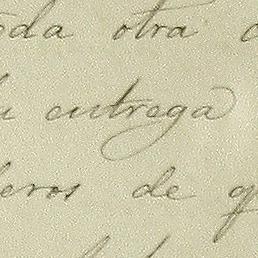 oda otra
entrega
eros de